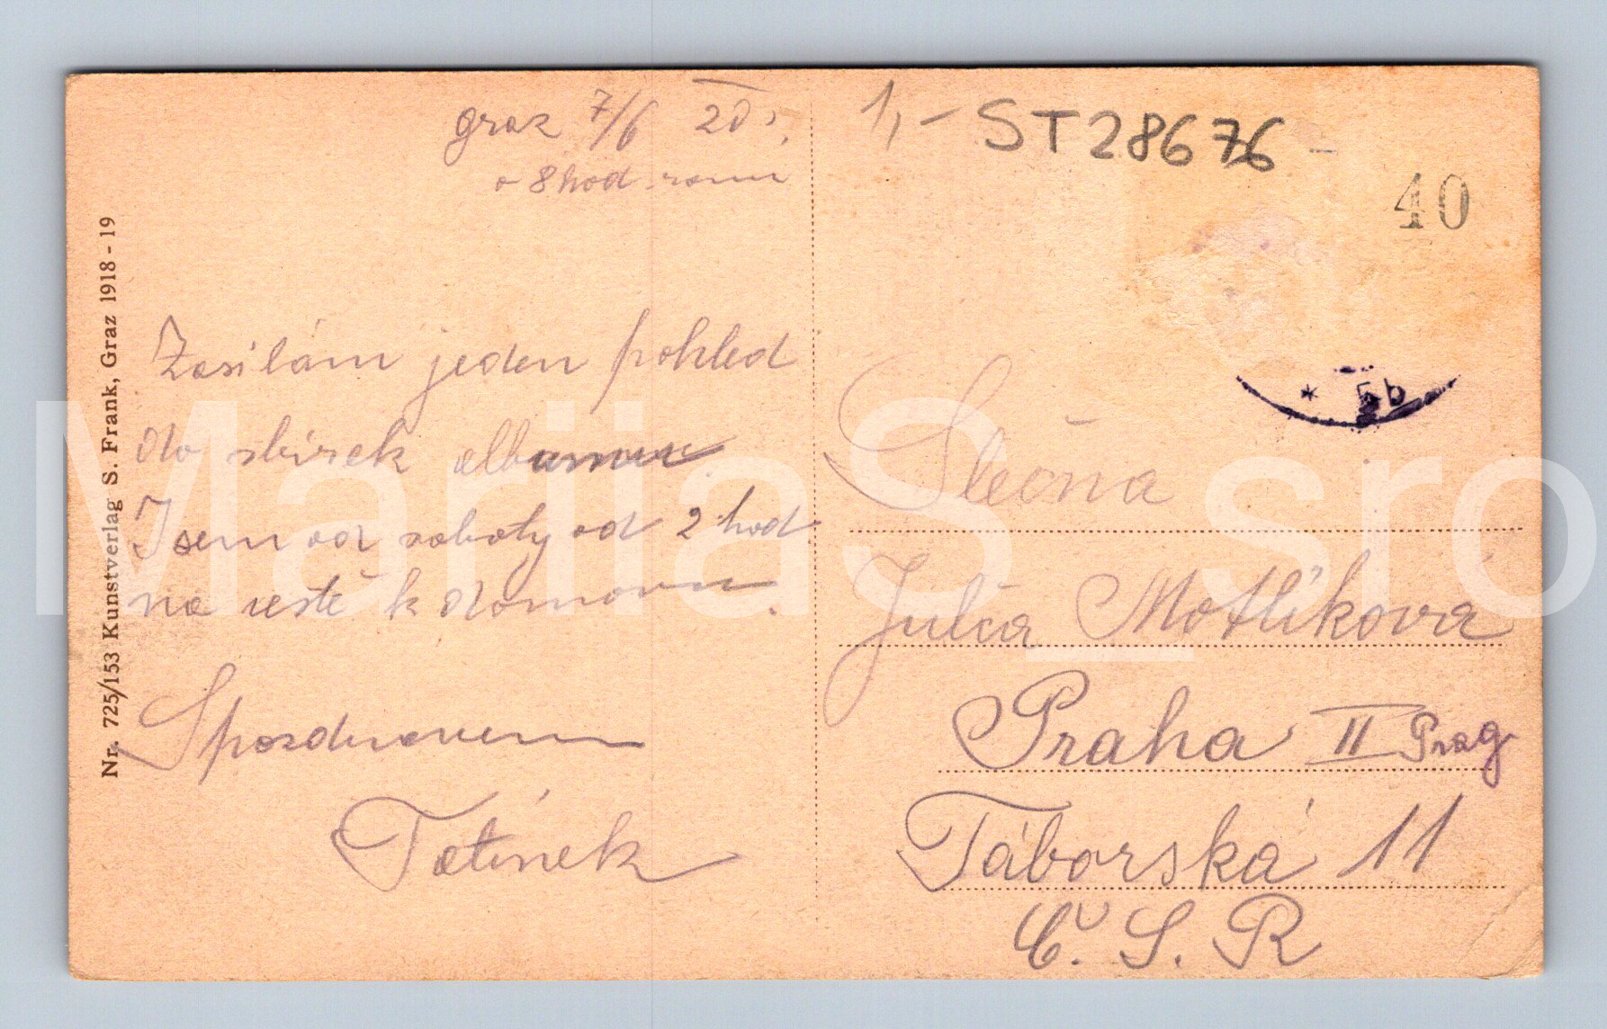 graz 7/6 20
o 8 hod. ranu
1,- ST28676 -
40
Zasilám jeden pohled
do sbírek albumu
Jsem od soboty od 2 hod
na cestě k domovu.
S pozdravem
Tatínek
Slečna
Julča Motlíková
Praha II Prag
Táborská 11
Č. S. R
* 5b
Nr. 725/153 Kunstverlag S. Frank, Graz 1918 - 19
MariiaS_sro